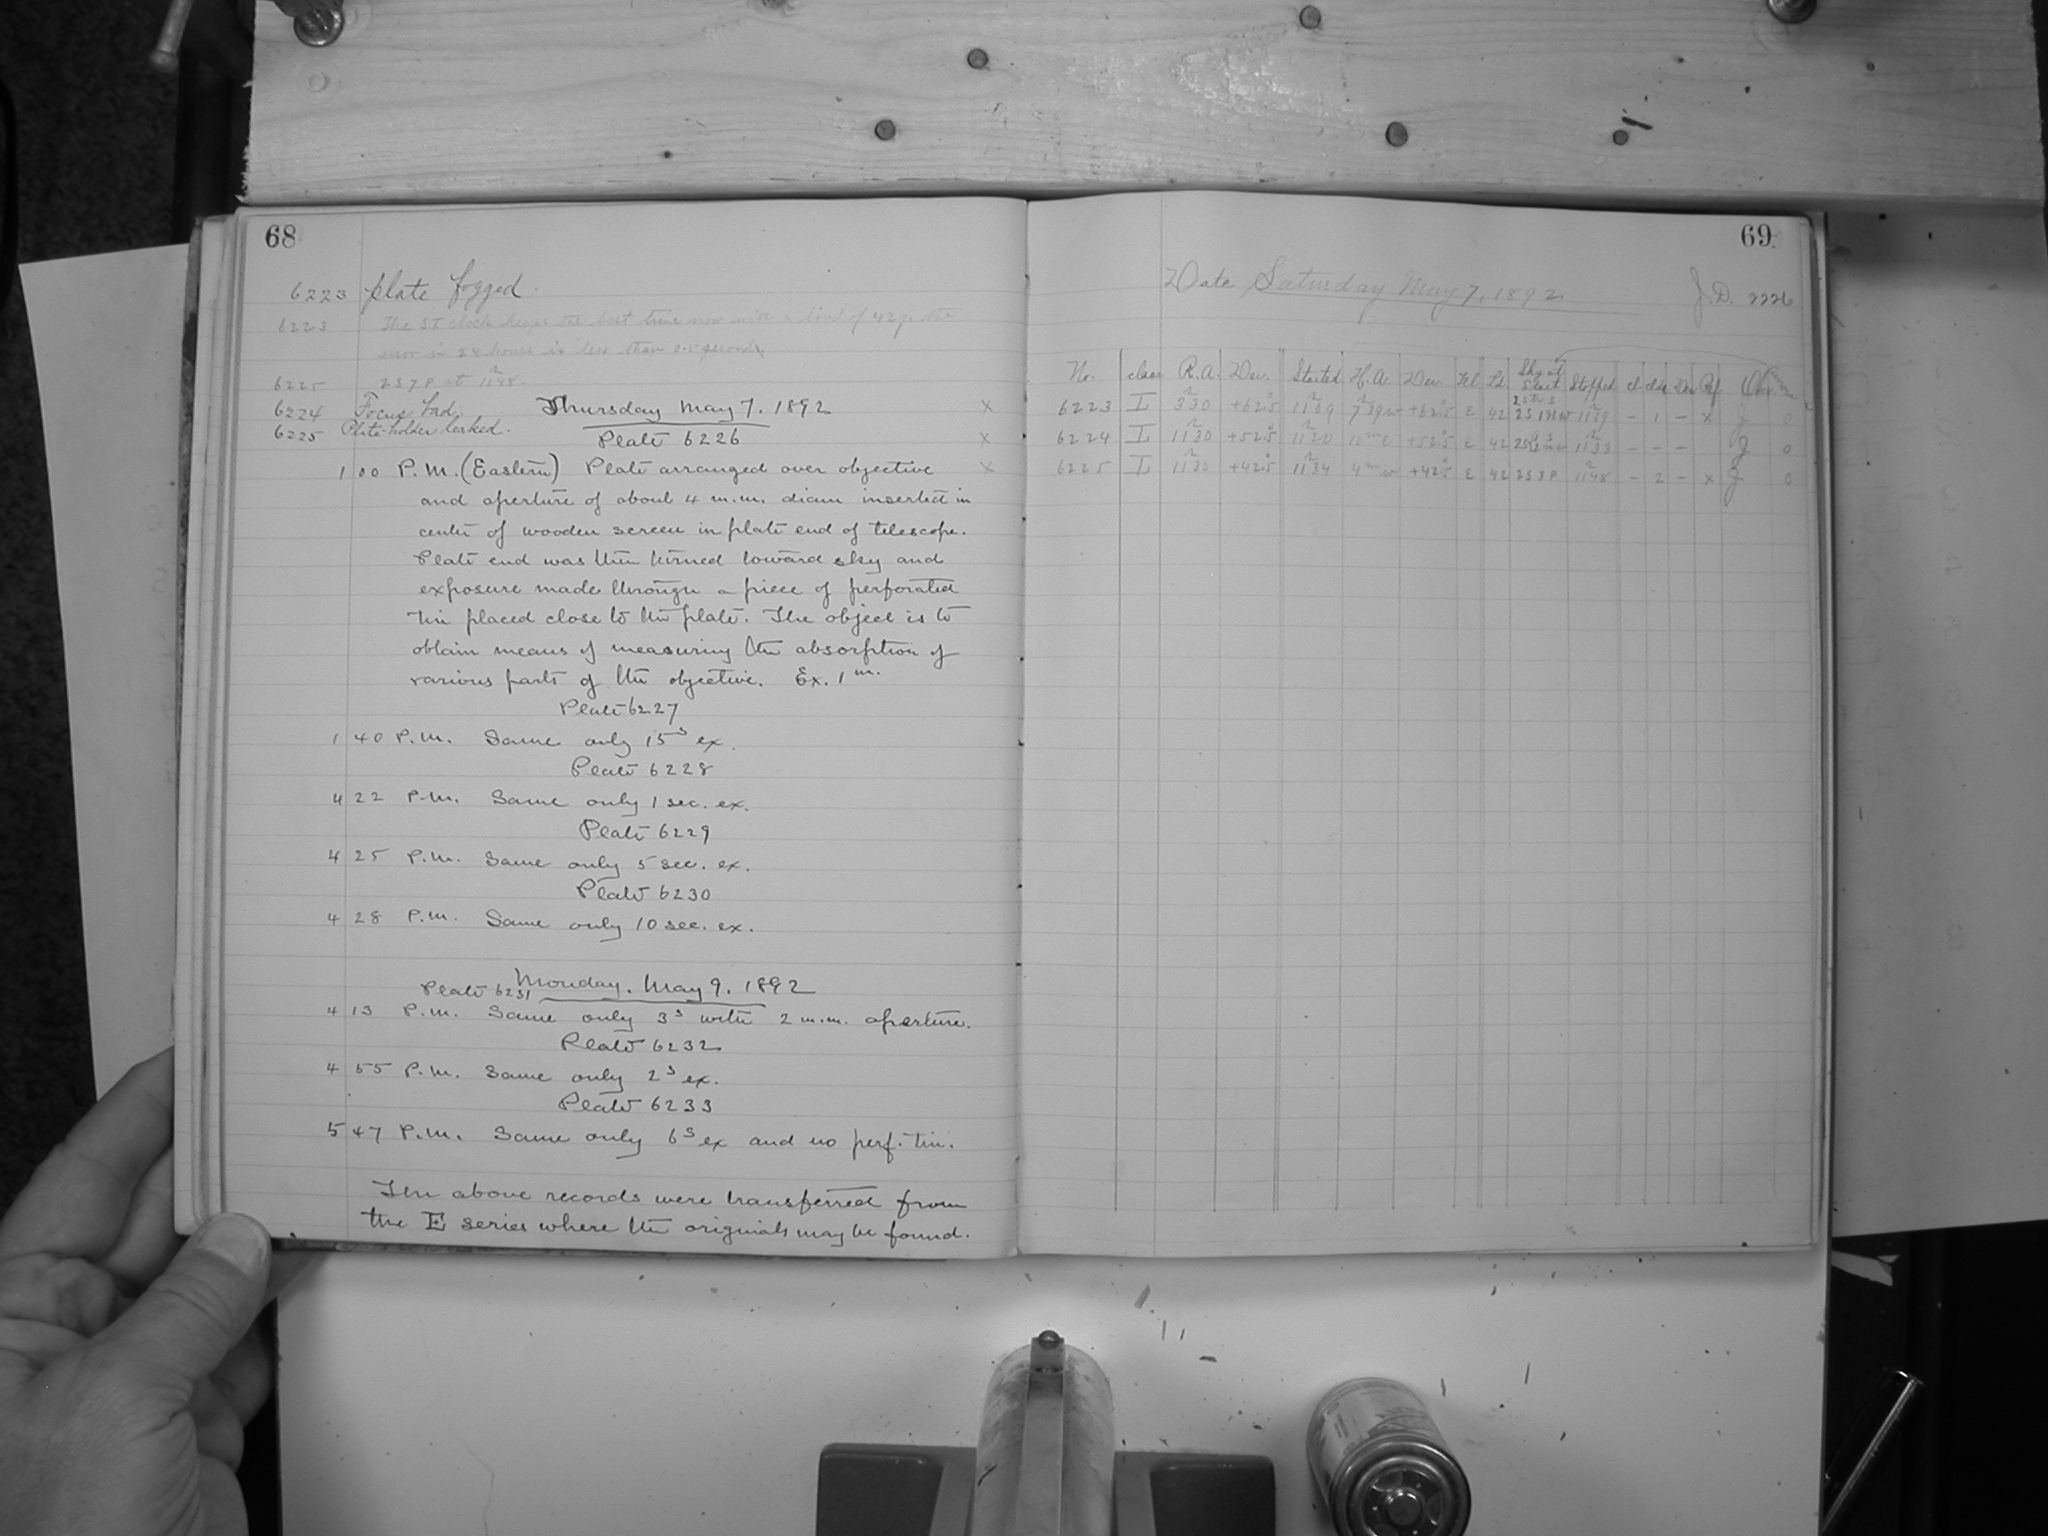 68
6223 plate fogged.
6223 The S.T. clock keeps the best time now with a load of 42 gr. the
error in 24 hours is less than 0.5 seconds
6225 2 S 7 P at 11h48.
6224 Focus bad.
Thursday May 7. 1892 x
6225 Plate-holder leaked.
Plate 6226 x
1 00 P.M. (Eastern) Plate arranged over objective x
and aperture of about 4 m.m. diam inserted in
center of wooden screen in plate end of telescope.
Plate end was then turned toward sky and
exposure made through a piece of perforated
tin placed close to the plate. The object is to
obtain means of measuring the absorption of
various parts of the objective. Ex. 1 m.
Plate 6227
1 40 P.M. Same only 15s ex.
Plate 6228
4 22 P.M. Same only 1 sec. ex.
Plate 6229
4 25 P.M. Same only 5 sec. ex.
Plate 6230
4 28 P.M. Same only 10 sec. ex.
Monday. May 9. 1892
Plate 6231
4 13 P.M. Same only 3s with 2 m.m. aperture.
Plate 6232
4 55 P.M. Same only 2s ex.
Plate 6233
5 47 P.M. Same only 6s ex and no perf. tin.
The above records were transferred from
the E series where the originals may be found.
69
Date Saturday May 7, 1892 J.D. 2226
No. class R.A. Dec. Started H.A. Dec. Tel Lt Sky at Start Stopped cl clk Dev Ref Obs
6223 I 3h30 +62°.5 11h09 7h39w +62°.5 E 42 11h19 - 1 - x J 0
6224 I 11h30 +52°.5 11h20 10mE +52°.5 E 42 11h33 - - - J 0
6225 I 11h30 +42°.5 11h34 4mw +42°.5 E 42 2 S 7 P 11h48 - 2 - x J 0